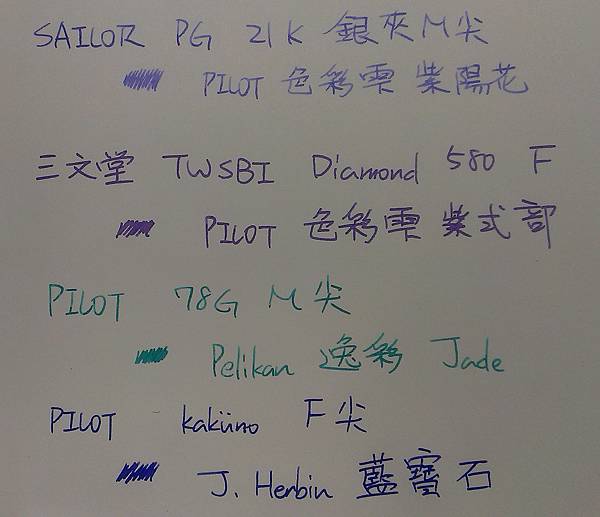 SAILOR PG 21K 銀夾M尖
PILOT 色彩雫 紫陽花
三文堂 TWSBI Diamond 580 F
PILOT 色彩雫 紫式部
PILOT 78G M尖
Pelikan 逸彩 Jade
PILOT kaküno F尖
J. Herbin 藍寶石